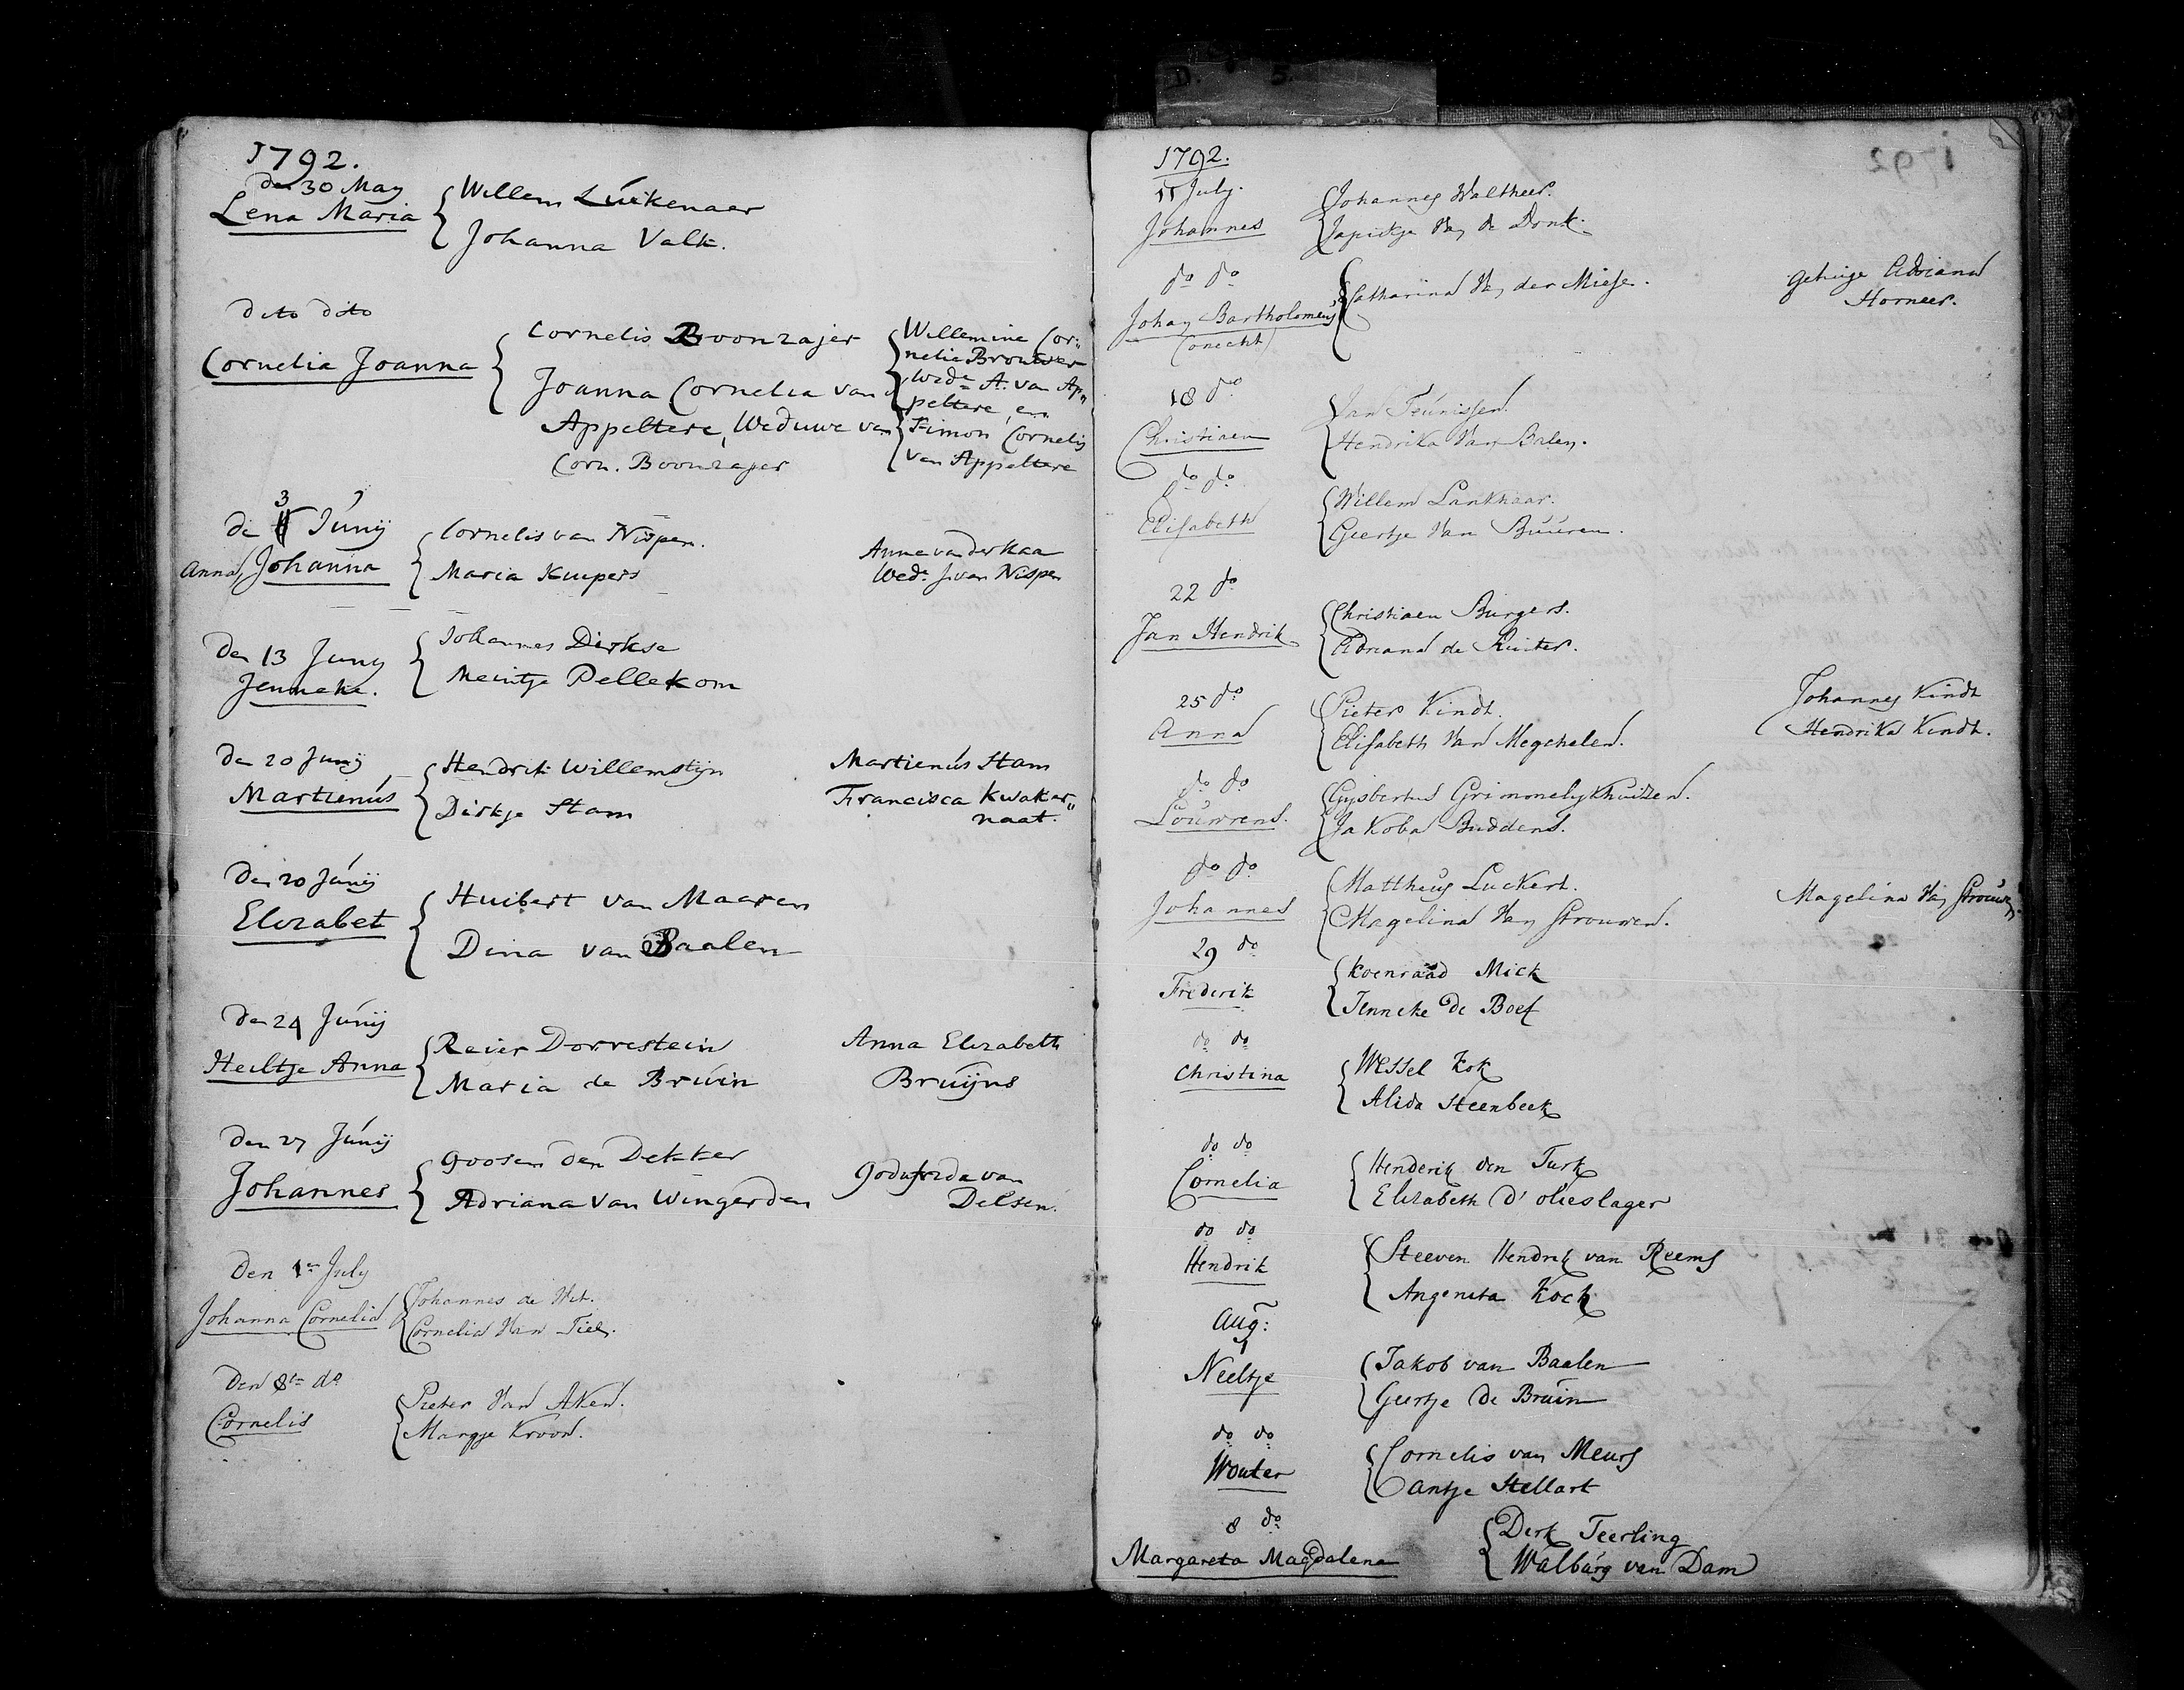 1792.
den 30 May
Lena Maria
Willem Luikenaer
Johanna Valk.
dito dito
Cornelia Joanna
Cornelis Boonzajer
Joanna Cornelia van
Appeltere, Weduwe van
Corn. Boonzajer
Willemine Cor„
nelia Brouwer
Wede A. van Ap„
peltere, en
Simon Cornelis
van Appeltere
de 3 Junij
Anna Johanna
Cornelis van Nispen.
Maria Kuipers
Anna van der Kaa
Wede J. van Nispen
den 13 Juny
Jenneke.
Johannes Dirkse
Meintje Pellekom
den 20 Junij
Martienus
Hendrik Willemstijn
Dirkje Stam
Martienus Stam
Francisca Kwaker„
naat.
den 20 Junij
Elizabet
Huibert van Maaren
Dina van Baalen
den 24 Junij
Heiltje Anna
Reier Dorrestein
Maria de Bruin
Anna Elizabeth
Bruijns
den 27 Junij
Johannes
Goosen den Dekker
Adriana van Wingerden
Godufrida van
Delsen.
Den 1en July
Johanna Cornelia
Johannes de Wit.
Cornelia Van Tiel.
Den 8te do
Cornelis
Pieter Van Aken.
Margje Kroon.
1792.
11 July.
Johannes
Johannes Walther.
Japikje Van de Donk.
do do
Johan Bartholomeus
(onecht)
Catharina Van der Miese.
getuige Adriana
Horneer.
18 do
Christiaen
Jan Teunissen.
Hendrika Van Balen.
do do
Elisabeth
Willem Lankhaar.
Geertje Van Buuren.
22 do
Jan Hendrik
Christiaen Burgers.
Adriana de Ruiter.
25 do
Anna
Pieter Kindt.
Elisabeth Van Megchelen.
Johannes Kindt
Hendrika Kindt.
do do
Louwrens.
Gysbertus Grimmelykhuizen.
Jakoba Buddens.
do do
Johannes
Mattheus Luckert.
Magelina Van Strouwen.
Magelina Van Strouwen.
29 do
Frederik
Koenraad Mick
Jenneke de Boef
do do
Christina
Wessel Kok
Alida Steenbeek
do do
Cornelia
Henderik den Turk
Elizabeth d' olieslager
do do
Hendrik
Steeven Hendrik van Reems
Angeneta Kock
Aug:
1
Neeltje
Jakob van Baalen
Geertje de Bruin
do do
Wouter
Cornelis van Meurs
Antje Stellart
8 do
Margareta Magdalena
Derk Teerling
Walburg van Dam